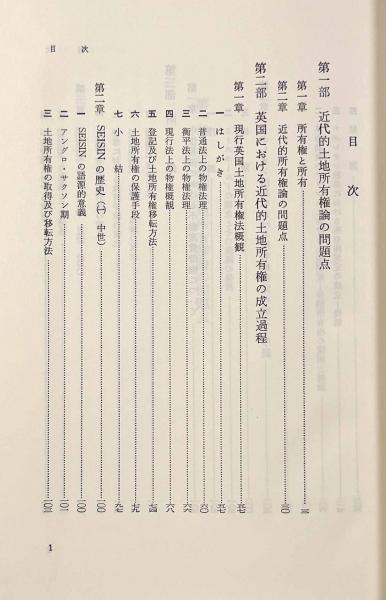 目次
第一部 近代的土地所有権論の問題点
第一章 所有権と所有……三
第二章 近代的所有権論の問題点……三〇
第二部 英国における近代的土地所有権の成立過程
第一章 現行英国土地所有権法概観……五七
一 はしがき……五七
二 普通法上の物権法理……六〇
三 衡平法上の物権法理……六三
四 現行法上の物権概観……六八
五 登記及び土地所有権移転方法……七四
六 土地所有権の保護手段……七九
七 小結……九七
第二章 SEISIN の歴史(一)中世……一〇〇
一 SEISIN の語源的意義……一〇〇
二 アングロ・サクソン期……一〇一
三 土地所有権の取得及び移転方法……一〇三
目次
1